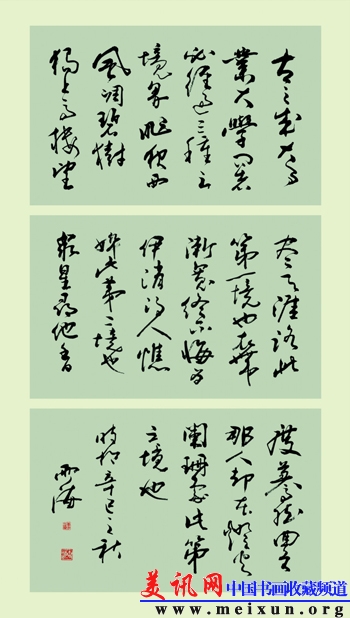 古之成大事
業大學問者
必經過三種之
境界昨夜西
風凋碧樹
獨上高樓望
盡天涯路此
第一境也衣帶
漸寬終不悔為
伊消得人憔
悴此第二境也
衆里尋他千百
度驀然回首
那人却在燈火
闌珊處此第
三境也
辛巳之秋
美讯网 中国书画收藏频道
www.meixun.org